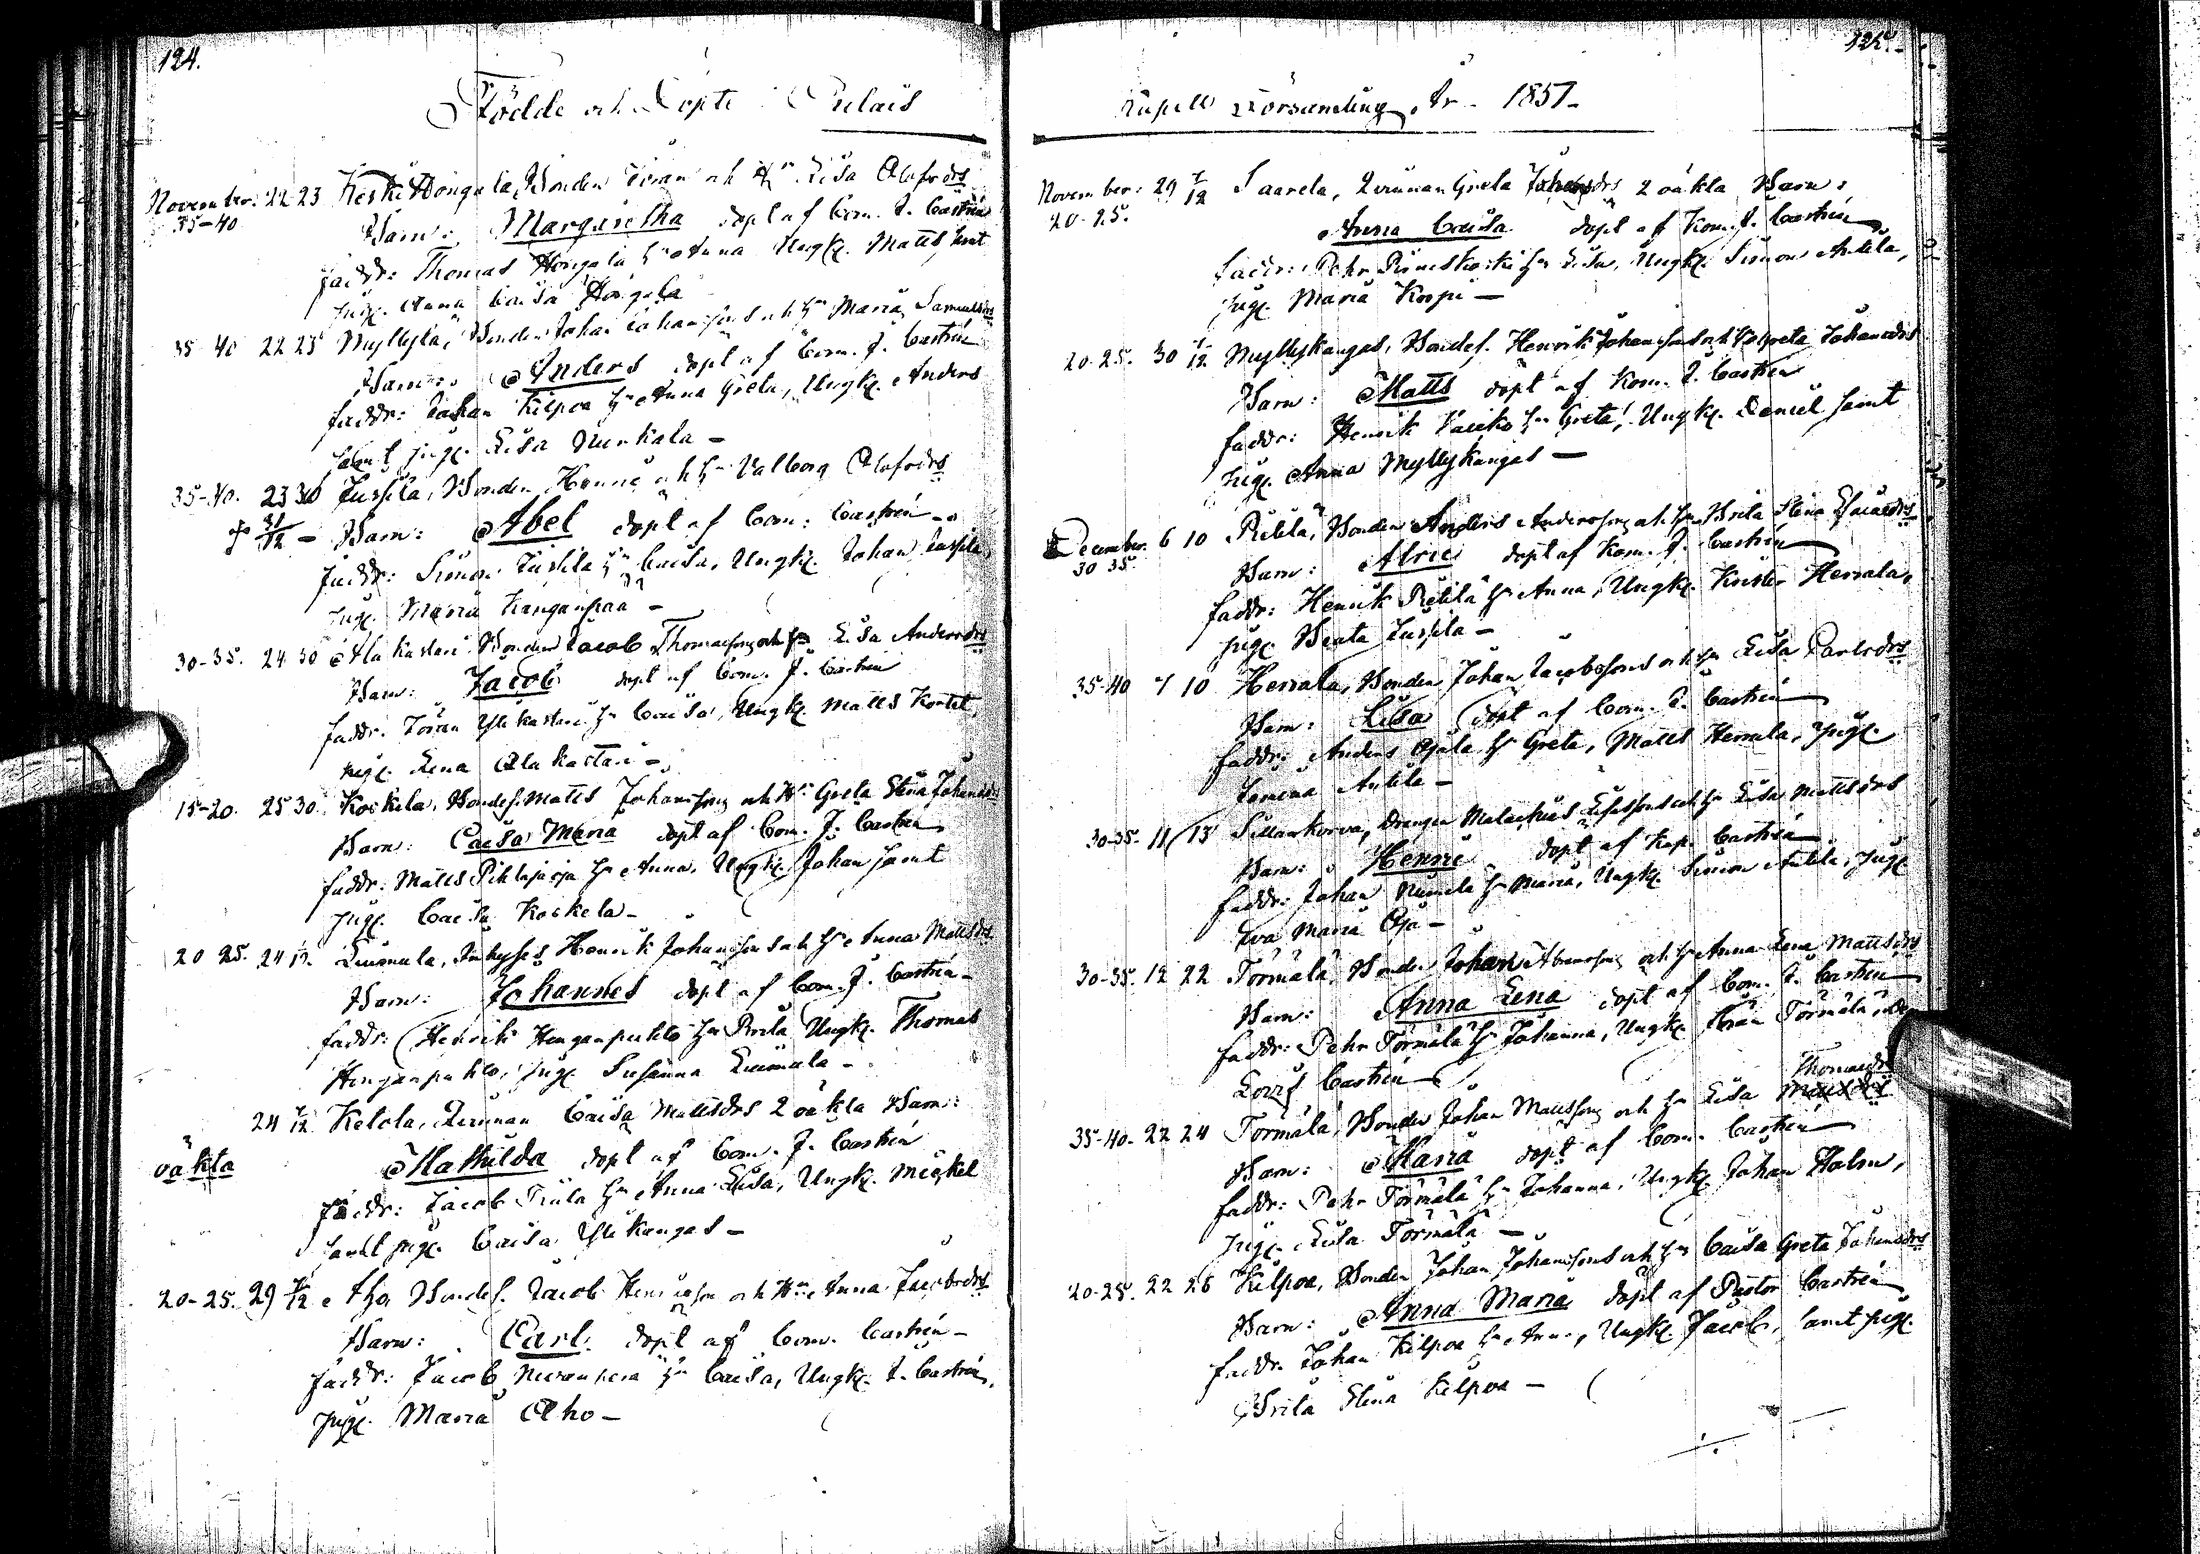 124.
Födde och Döpte i Pulais
November. 22 23 Keski Hongala, Bonden Göran och H:u Lisa Olofsdr
35-40 Barn: Margaretha döpt af Com. J. Castrén
faddr: Thomas Hongala h:u Anna Ungk. Matts samt
pig. Anna Caisa Hongala
35-40 22 23 Myllylä, Bonden Johan Johansson och h:u Maria Samuelsdr
Barn: Anders döpt af Com. J. Castrén
faddr: Johan Kilpoa h:u Anna Greta, Ungk. Anders
samt pig. Lisa Nurkala -
35-40. 23 30 Jussila, Bonden Henric och h:u Valborg Olofsdr
† 31/12 - Barn: Abel döpt af Com: Castrén -
faddr: Simon Jussila h:u Caisa, Ungk. Johan Jussila,
pig. Maria Kangaspää -
30-35. 24 30 Ala Kastari Bonden Jacob Thomasson och h:u Lisa Andersdr
Barn: Jacob döpt af Com. J. Castrén
faddr. Göran Yli Kastari h:u Caisa, Ungk. Matts Kontet,
pig. Lena Ala Kastari -
15-20. 25 30. Koskela, Bondes. Matts Johansson och H:u Greta Stina Johansdr
Barn: Caisa Maria döpt af Com. J. Castrén
faddr: Matts Pihlajaoja h:u Anna, Ungk. Johan samt
pig. Caisa Koskela -
20 25. 24 1/12. Liumala, Inhyses Henrik Johansson och h:u Anna Mattsdr
Barn: Johannes döpt af Com. J. Castrén -
faddr: Henrik Henganpuhto h:u Brita Ungk. Thomas
Henganpuhto, pig. Susanna Liumala -
24 7/12 Ketola, Qvinnan Caisa Mattsdr 2 oäkta Barn:
oäkta Mathilda döpt af Com. J. Castrén
faddr: Jacob Tuula h:u Anna Lisa, Ungk. Mickel
samt pig. Caisa Ylikangas -
20-25. 29 7/12 Aho Bondes. Jacob Henricsson och H:u Anna Jacobsdr
Barn: Carl. döpt af Com. Castrén -
faddr: Jacob Nuranpera h:u Caisa, Ungk. J. Castrén,
pig. Maria Aho -
125.
Capell Församling År 1857-
November: 29 7/12 Saarela, Qvinnan Greta Johansdr 2 oäkta Barn:
20-25. Anna Caisa döpt af Kom. J. Castrén
faddr: Pehr h:u Lisa, Ungk. Simon Antila,
pig. Maria Korpi -
20-25. 30 7/12 Myllykangas, Bondes. Henrik Johansson och h:u Greta Johansdr
Barn: Matts döpt af Kom. J. Castrén
faddr: Henrik h:u Greta, Ungk. Daniel samt
pig. Anna Myllykangas -
December 6 10 Pietilä, Bonden Anders Andersson och h:u Brita Stina Esaiasdr
30 35 Barn: Alric döpt af Kom. J. Castrén
faddr: Henrik Pietilä h:u Anna, Ungk. Krister Herrala,
pig. Beata Jussila -
35-40 7 10 Herrala, Bonden Johan Jacobsson och h:u Lisa Carlsdr
Barn: Lisa döpt af Com. J. Castrén
faddr: Anders Ojala h:u Greta, Matts Herrala, pig.
Antila -
30-35. 11 13 Sillankorva, Drengen Malachias och h:u Lisa Mattsdr
Barn: Henric döpt af Kap. Castrén
faddr: Johan Niemela h:u Maria, Ungk. Simon Antila, pig.
Eva Maria Oja -
30-35. 12 22 Törmälä Bonden Johan Abramsson och h:u Anna Lena Mattsdr
Barn: Anna Lena döpt af Com. J. Castrén
faddr: Pehr Törmälä h:u Johanna, Ungk. Göran Törmälä,
Castrén
Thomasdr
35-40. 22 24 Törmälä, Bonden Johan Mattsson och h:u Lisa
Barn: Maria döpt af Com. Castrén
faddr: Pehr Törmälä h:u Johanna, Ungk. Johan Holm,
pig. Lisa Törmälä -
20-25. 22 26 Kilpoa, Bonden Johan Johansson och h:u Caisa Greta Johansdr
Barn: Anna Maria döpt af Pastor Castrén
faddr. Johan Kilpoa h:u Anna, Ungk. Jacob, samt pig.
Brita Stina Kilpoa -